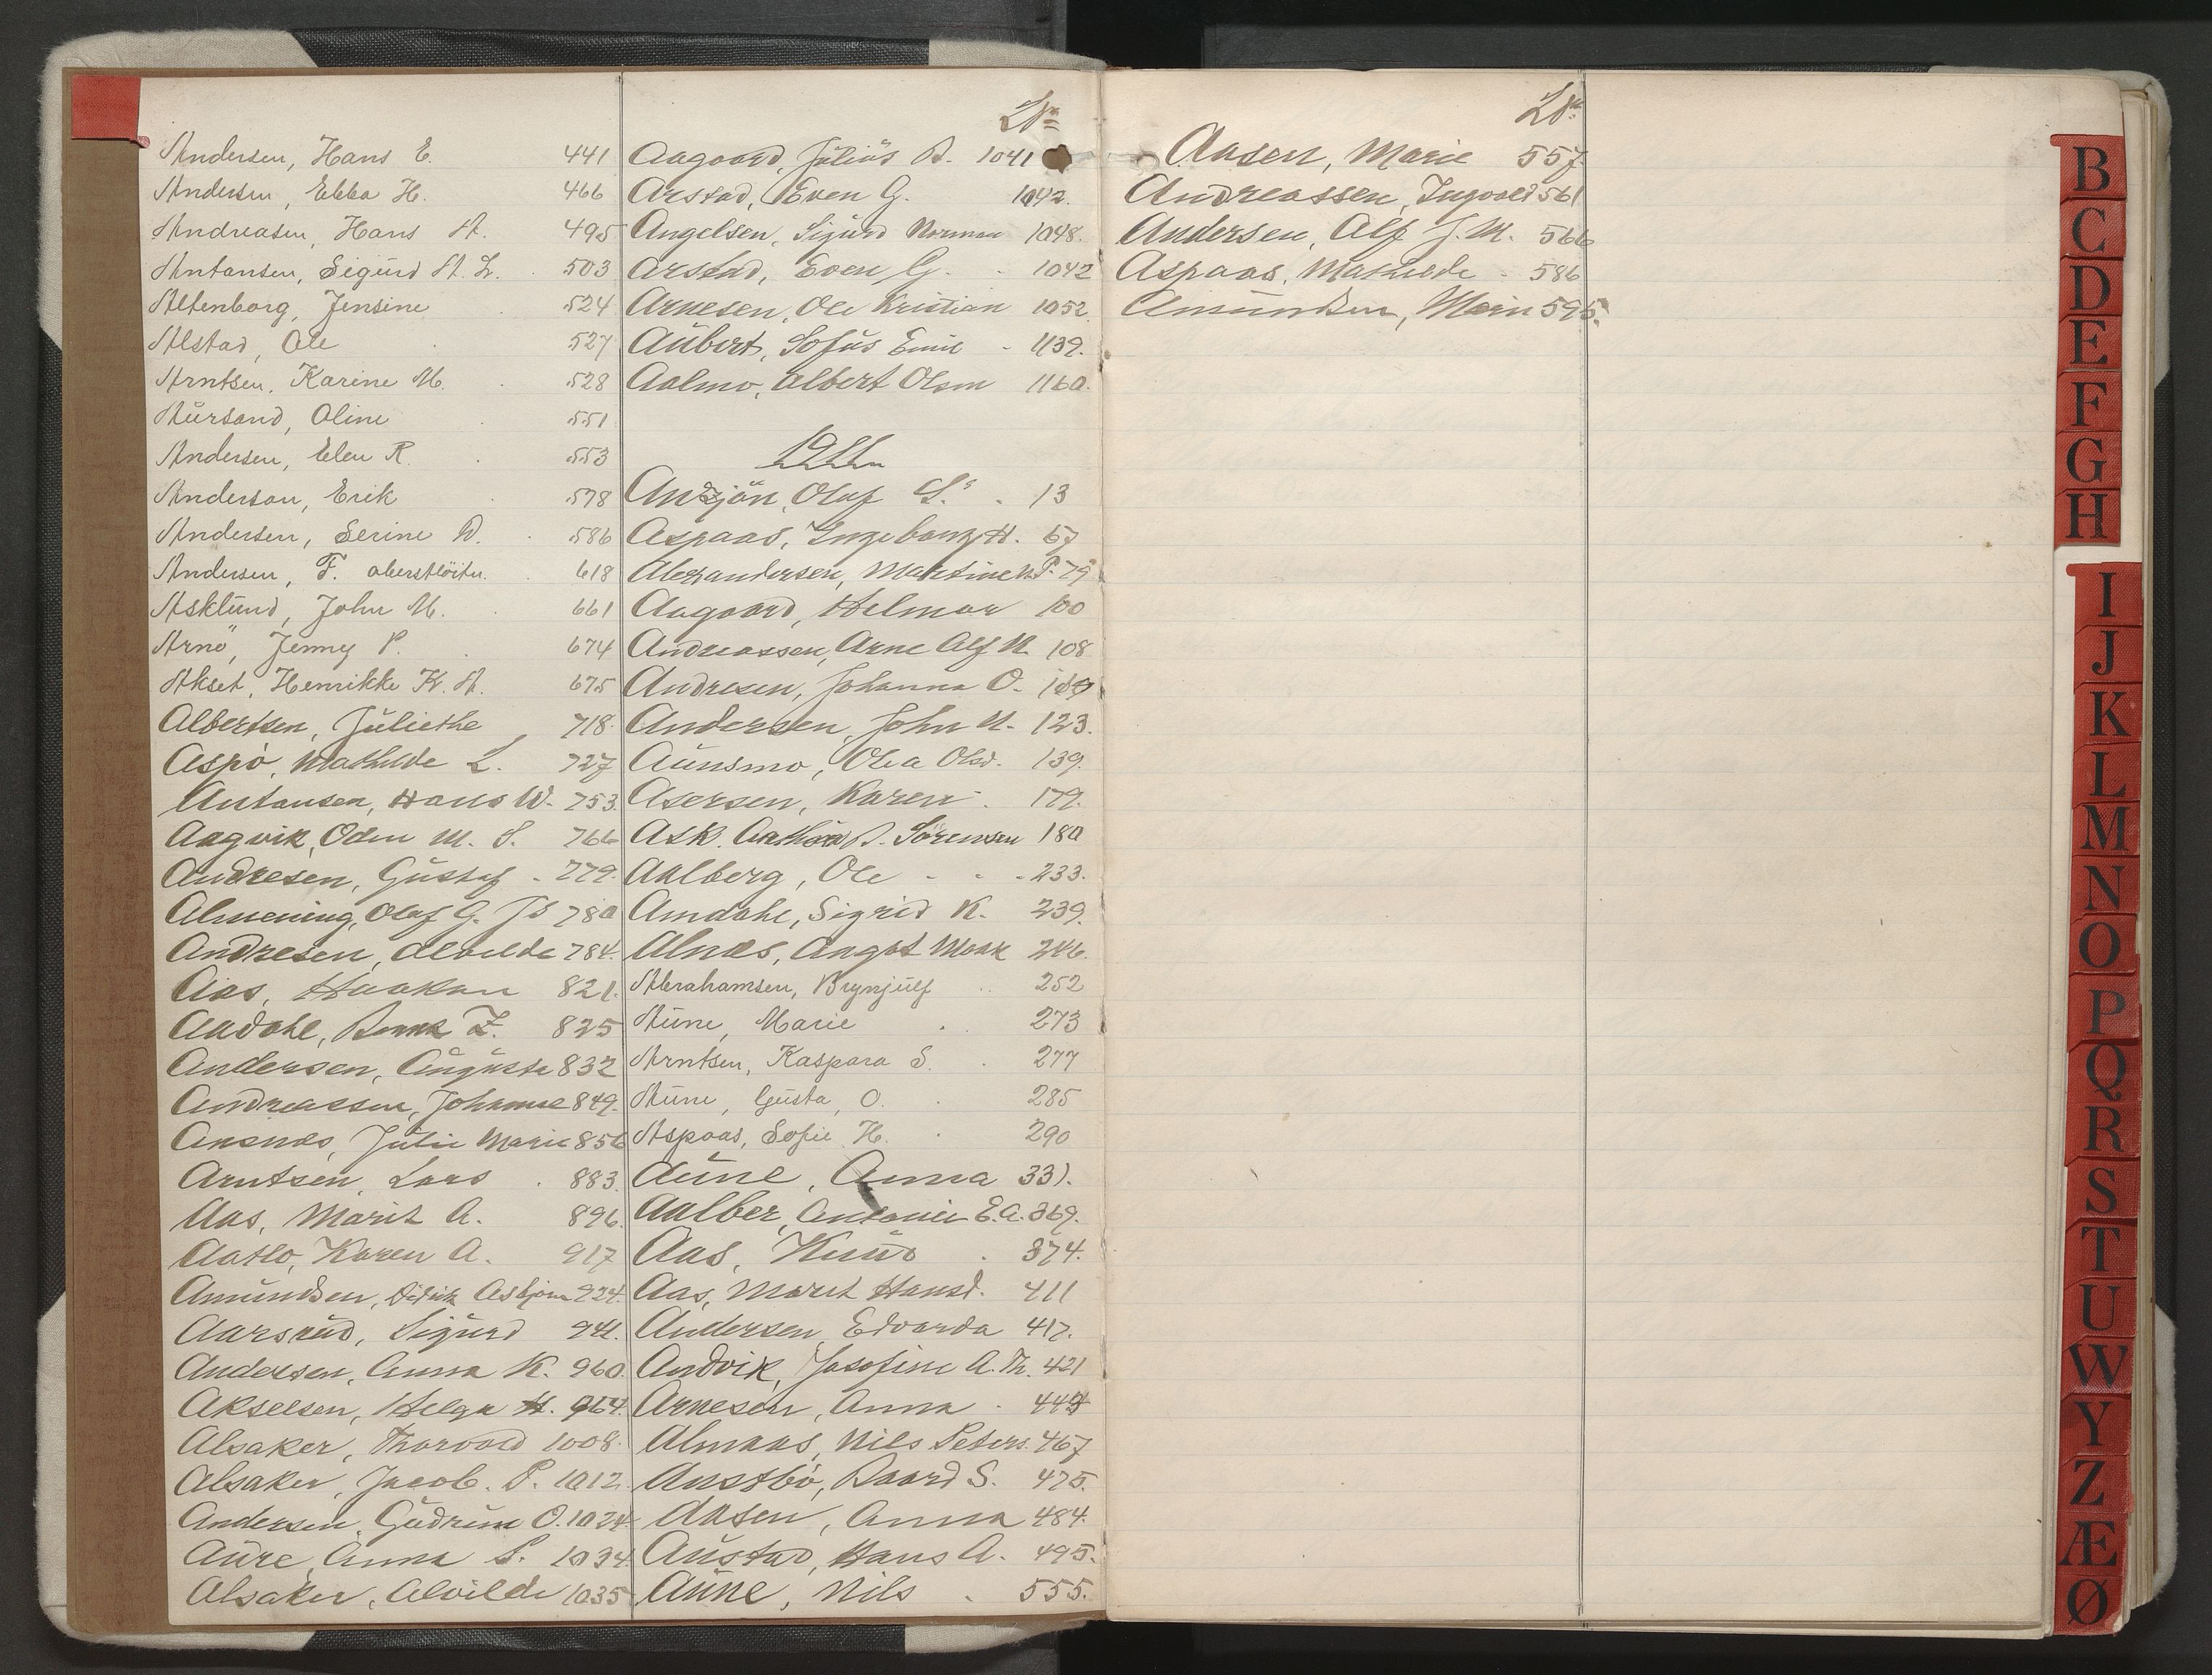 Andersen, Hans E. 441
Andersen, Ebba H. 466
Andreasen, Hans A. 495
Antonsen, Sigurd A. L. 503
Altenborg, Jensine 524
Alstad, Ole 527
Arntsen, Karine M. 528
Aursand, Oline 551
Andersen, Elen R. 553
Anderson, Erik 578
Andersen, Serine D. 586
Andersen, F. oberstlöitn. 618
Asklund, John M. 661
Arnö, Jenny P. 674
Akset, Henrikke K. A. 675
Albertsen, Juliethe 718.
Aspö, Mathilde L. 727
Antonsen, Hans W. 753.
Aagvik, Oden M. S. 766
Andresen, Gustaf 779.
Almening, Olaf G. Js 780
Andresen, Alvilde 784.
Aas, Haakon 821.
Aadahl, Z. 825
Andersen, Augusta 832
Andreassen, Johanne 849.
Aasnæs, Julie Marie 856
Arntsen, Lars 883.
Aas, Marit A. 896.
Aatlo, Karen A. 917
Amundsen, Didrik Asbjørn 924.
Aarsrud, Sigurd 941.
Andersen, Anna K. 960.
Akselsen, Helga H. 964.
Alsaker, Thorvald 1008.
Alsaker, Jacob. P. 1012.
Andersen, Gudrun O. 1024
Aure, Anna S. 1034.
Alsaker, Alvilde 1035
Lnr.
Aagaard, Julius B. 1041
Arstad, Even G. 1042.
Angelsen, Sigurd Norman 1048.
Arstad, Even G. 1042
Arnesen, Ole Kristian 1052.
Aubert, Sofus Emil 1139.
Aalmo, Albert Olsen 1160.
1911
Olaf S. 13
Aspaas, Ingeborg H. 67
Alexandersen, Martine N. P. 79
Aagaard, Helmar 100
Andreassen, Arne Alf N. 108
Andresen, Johanna O.
Andersen, John N. 123.
Aunsmo, Olea Olsd. 139.
Asersen, Karen 179.
Ask, B. Sörensen 180
Aalberg, Ole 233.
Amdahl, Sigrid K. 239.
Alnæs, Angot Monk 246.
Abrahamsen, Brynjulf 252
Aune, Marie 273
Arntsen, Kaspara S. 277
Aune, Gusta, O. 285
Aspaas, Sofie H. 290
Aune, Anna 331.
Aalber, Antonie E. A. 369.
Aas, Knud 374.
Aas, Marit Hansd. 411
Andersen, Edvarda 417.
Andvik, Josefine A. Th. 421
Arnesen, Anna
Almaas, Nils Peters. 467
Austbö, Baard S. 475.
Aasen, Anna 484.
Austad, Hans A. 495.
Aune, Nils 555.
Lnr.
Aasen, Marie 557.
Andreassen, Ingvald 561
Andersen, Alf J. M. 566
Aspaas, Mathilde 586
Amundsen, 595.
B
C
D
E
F
G
H
I
J
K
L
M
N
O
P
Q
R
S
T
U
W
Y
Z
Æ
Ø